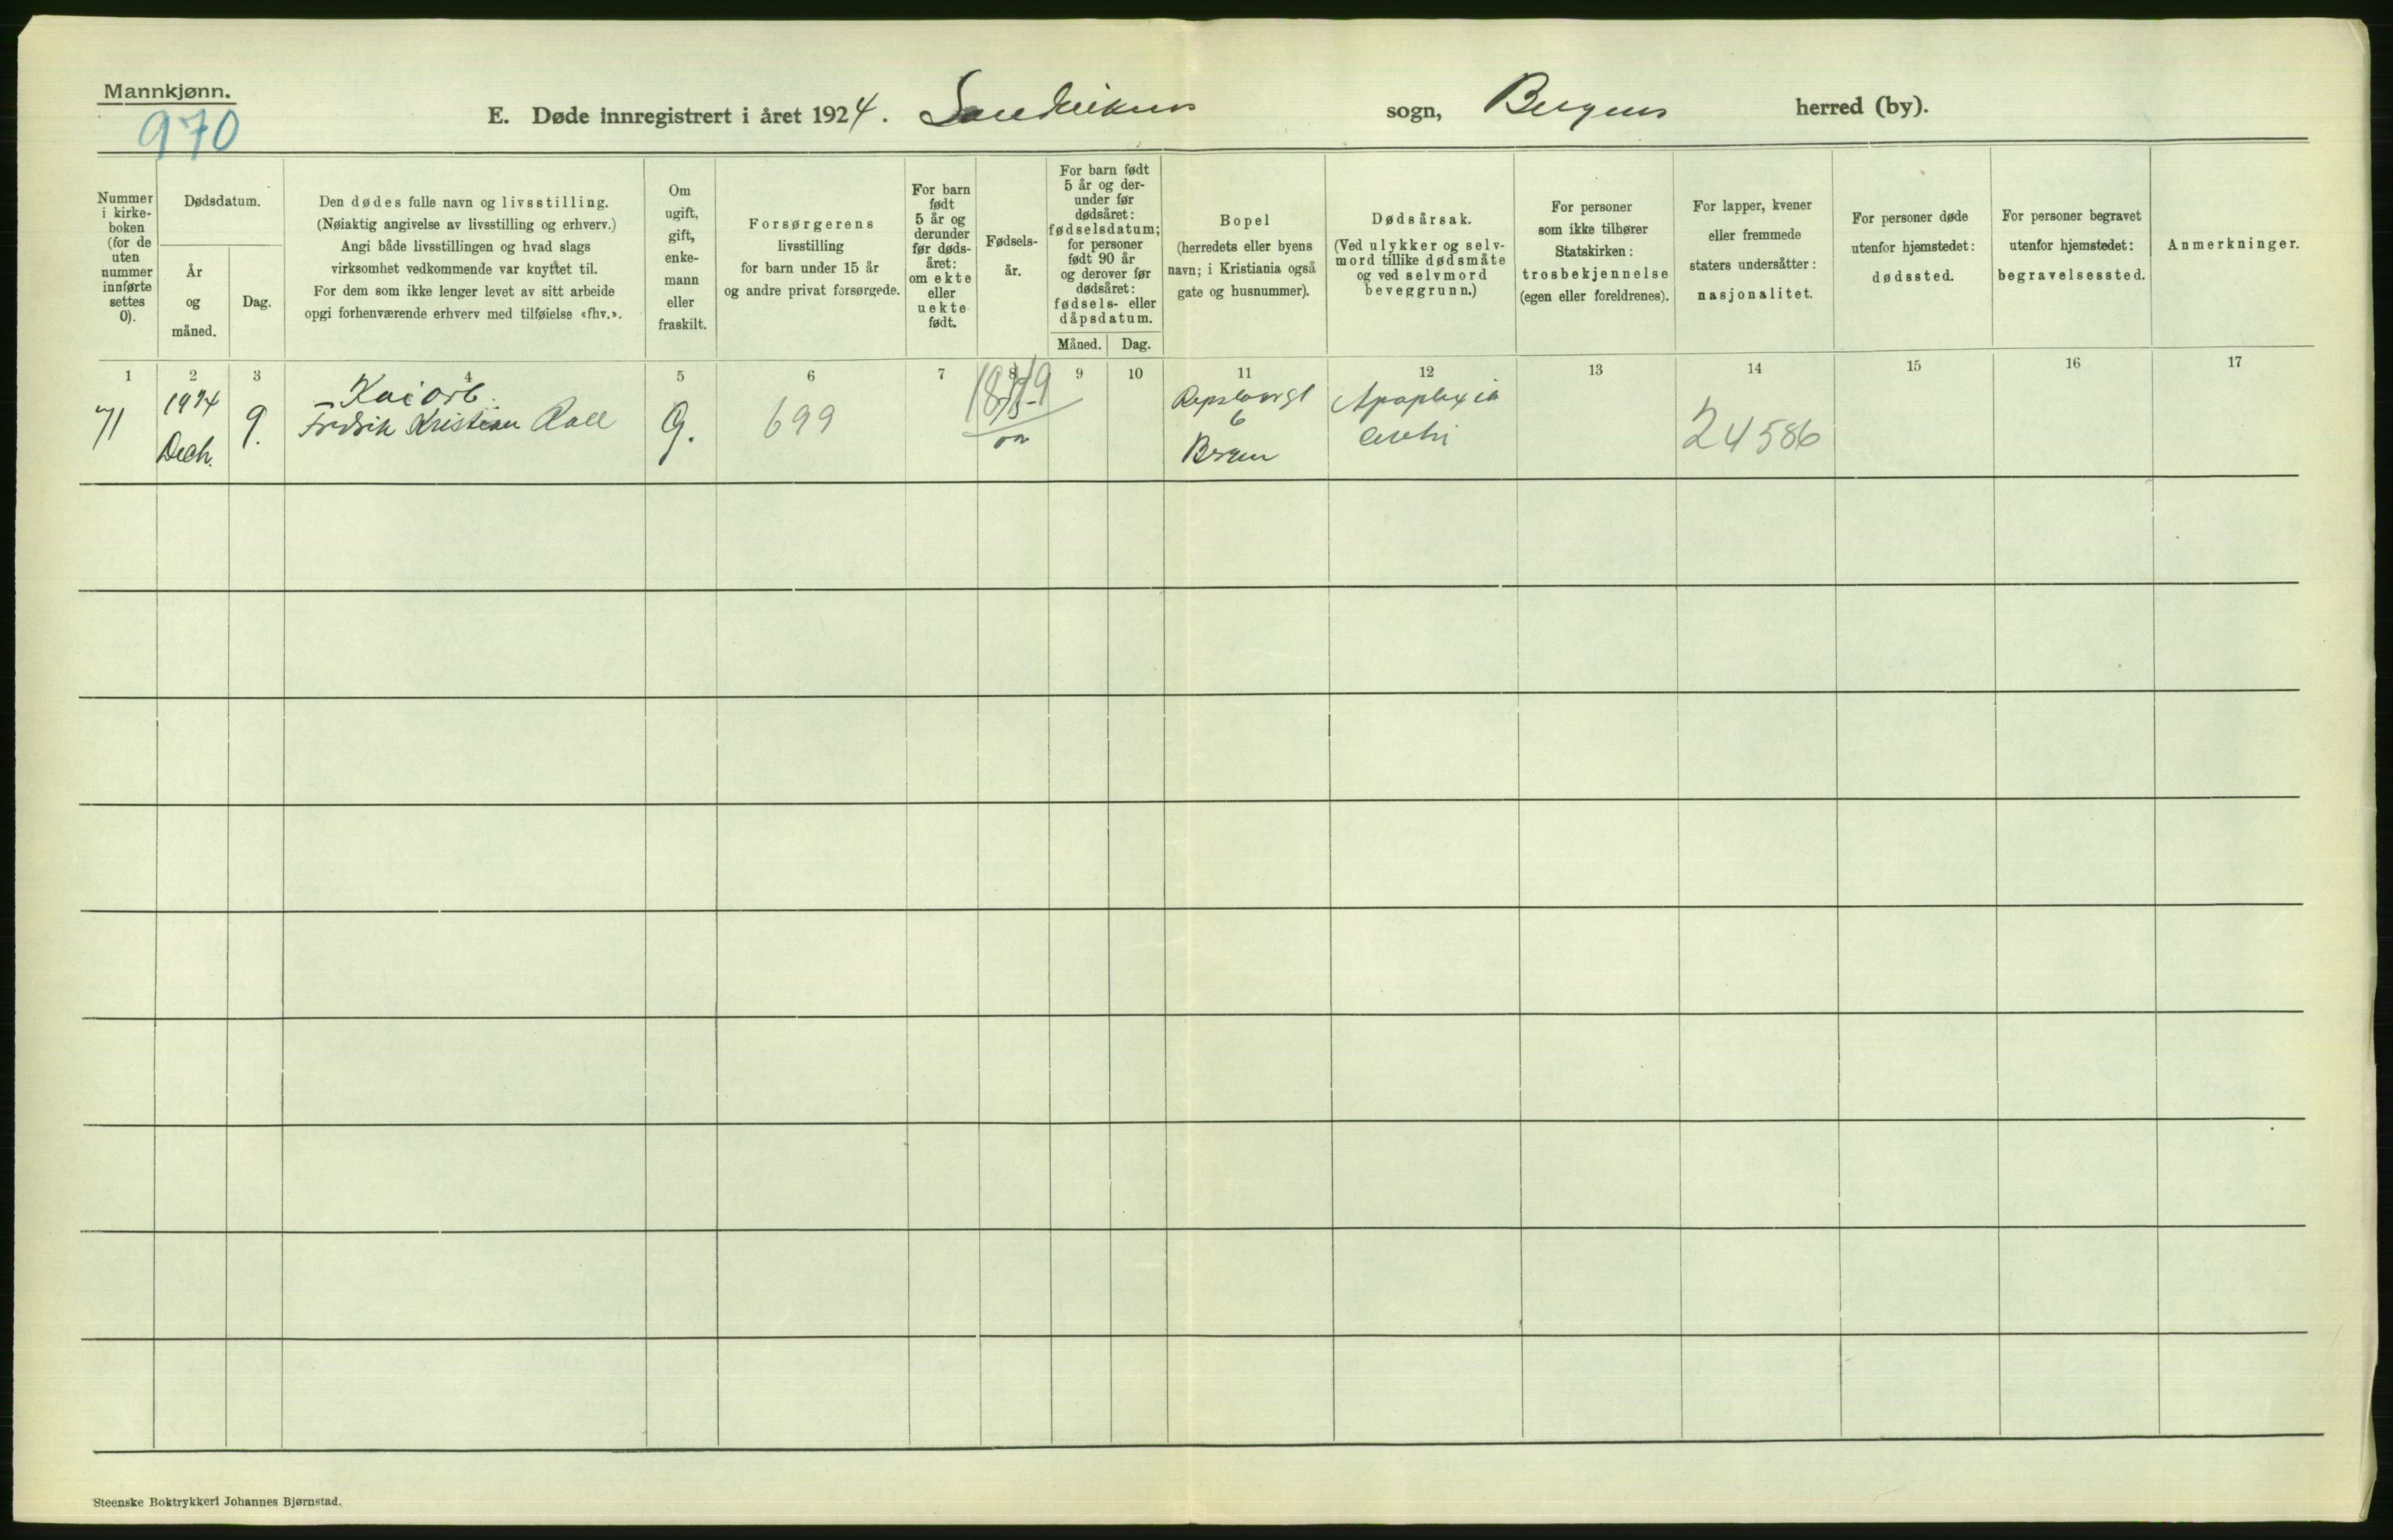 Mannkjønn.
970
E. Døde innregistrert i året 1924. Sandvikens sogn, Bergens herred (by).
Nummer
i kirke-
boken
(for de
uten
nummer
innførte
settes
0).
Dødsdatum.
År
og
måned.
Dag.
Den dødes fulle navn og livsstilling.
(Nøiaktig angivelse av livsstilling og erhverv.)
Angi både livsstillingen og hvad slags
virksomhet vedkommende var knyttet til.
For dem som ikke lenger levet av sitt arbeide
opgi forhenværende erhverv med tilføielse «fhv.».
Om
ugift,
gift,
enke-
mann
eller
fraskilt.
Forsørgerens
livsstilling
for barn under 15 år
og andre privat forsørgede.
For barn
født
5 år og
derunder
før døds-
året:
om ekte
eller
uekte
født.
Fødsels-
år.
For barn født
5 år og der-
under før
dødsåret:
fødselsdatum;
for personer
født 90 år
og derover før
dødsåret:
fødsels- eller
dåpsdatum.
Måned.
Dag.
Bopel
(herredets eller byens
navn; i Kristiania også
gate og husnummer).
Dødsårsak.
(Ved ulykker og selv-
mord tillike dødsmåte
og ved selvmord
beveggrunn.)
For personer
som ikke tilhører
Statskirken:
trosbekjennelse
(egen eller foreldrenes).
For lapper, kvener
eller fremmede
staters undersåtter:
nasjonalitet.
For personer døde
utenfor hjemstedet:
dødssted.
For personer begravet
utenfor hjemstedet:
begravelsessted.
Anmerkninger.
1 2 3 4 5 6 7 8 9 10 11 12 13 14 15 16 17
71
1924
Decb.
9.
Kaiarb.
Fredrik Kristian Roll
G.
699
6
Bergen
Apoplexia
cerebri
24586
Steenske Boktrykkeri Johannes Bjørnstad.